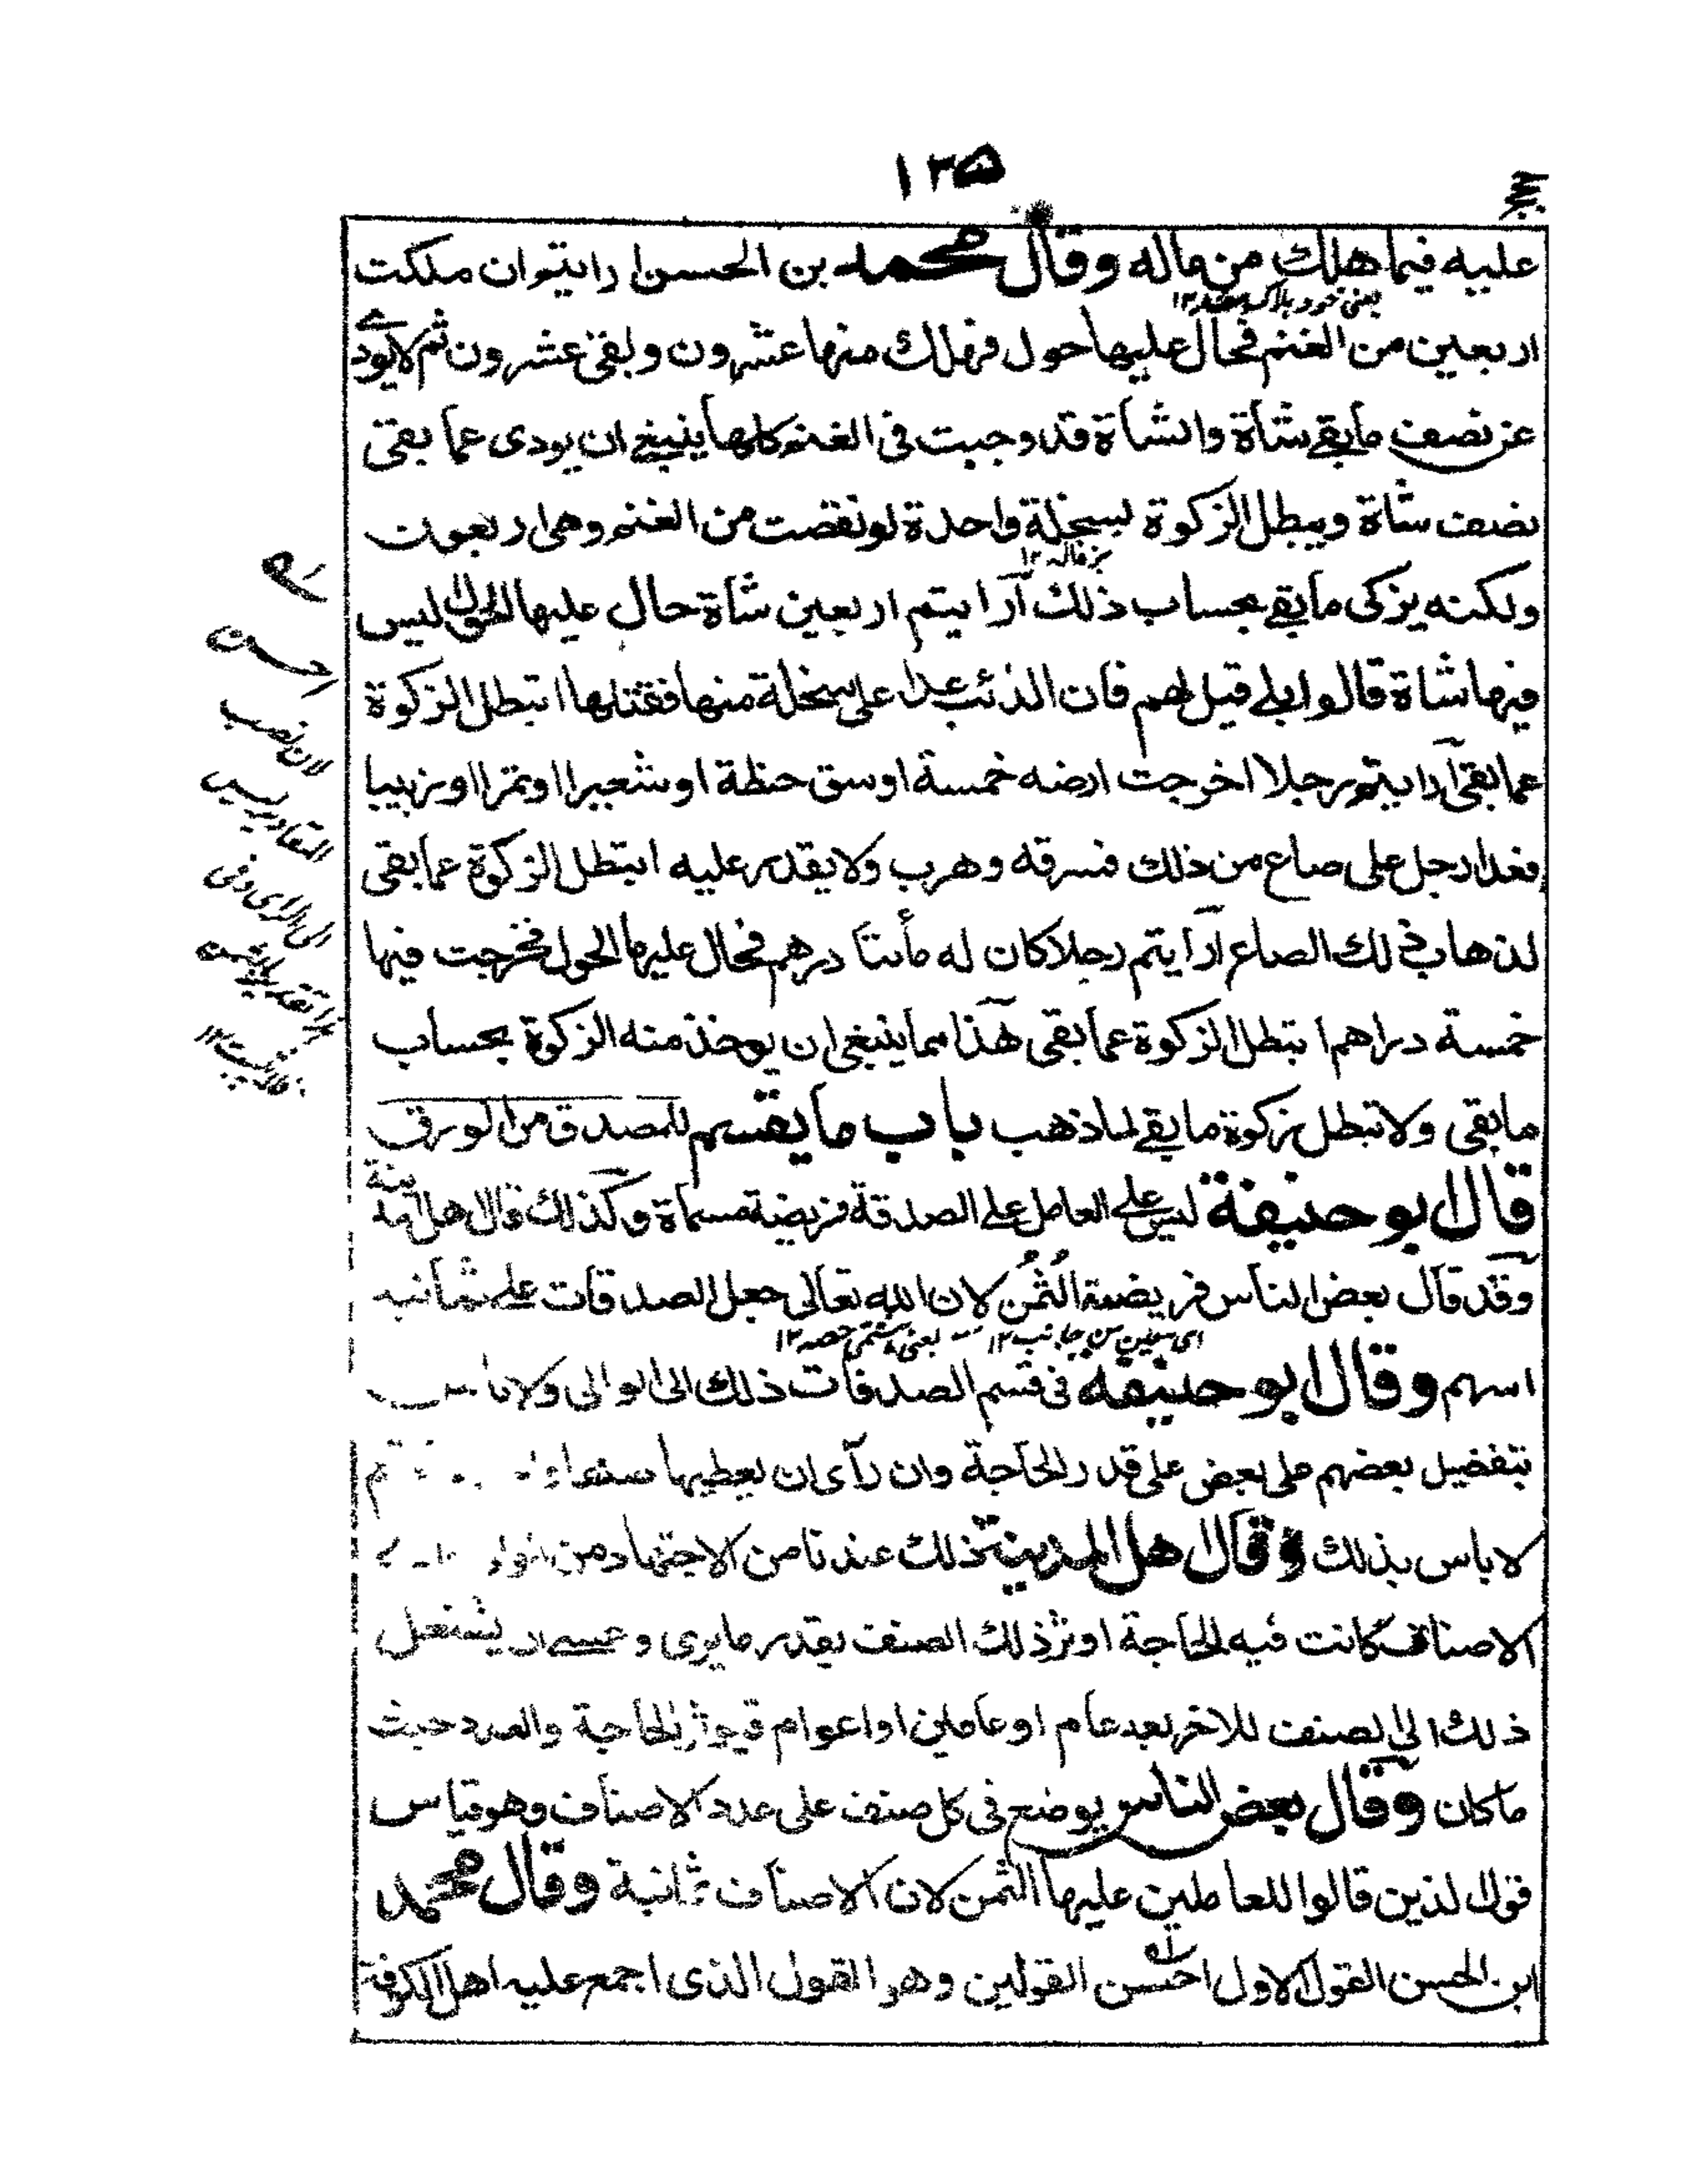 ١٣٥
عليه فيما هلك من ماله وقال محمد بن الحسن ارايتم ان ملكت
اربعين من الغنم فحال عليها حول فهلك منها عشرون وبقى عشرون ثم لا يودى
عن نصف ما بقے شاة والشاة قد وجبت فى الغنم كلها ينبغے ان يودى عما بقى
نصف شاة ويبطل الزكوة لسخلة واحدة لو نقصت من الغنم وهى اربعون
ولكنه يزكى ما بقے بحساب ذلك آرايتم اربعين شاة حال عليها الحول اليس
فيها شاة قالوا بلے قيل لهم فان الذئب عدا على سخلة منها فقتلها اتبطل الزكوة
عما بقى ارايتم رجلا اخرجت ارضه خمسة اوسق حنطة او شعيرا او تمرا او زبيبا
فعدا رجل على صاع من ذلك فسرقه وهرب ولا يقدر عليه اتبطل الزكوة عما بقى
لذهاب ذلك الصاع ارآيتم رجلا كان له مأتا درهم فحال عليها الحول فخرجت فيها
خمسة دراهم اتبطل الزكوة عما بقى هذا مما ينبغى ان يوخذ منه الزكوة بحساب
ما بقى ولا تبطل زكوة ما بقے لما ذهب باب ما يقسم للمصدق من الورق
قال ابو حنيفة ليس على العامل على الصدقة فريضة مسماة وكذلك قال اهل المدينة
وقد قال بعض الناس فريضة الثُمُن لان الله تعالى جعل الصدقات على ثمانية
اسهم وقال ابو حنيفة فى قسم الصدقات ذلك الى الوالى ولا باس
بتفضيل بعضهم على بعض على قدر الحاجة وان رآى ان يعطيها
لا باس بذلك وقال اهل المدينة ذلك عندنا من الاجتهاد من
الاصناف كانت فيه الحاجة اوثر ذلك الصنف بقدر ما يرى وعسى ان ينتقل
ذلك الى الصنف للاخر بعد عام او عامين او اعوام فيوثر الحاجة والعدد حيث
ما كان وقال بعض الناس يوضع فى كل صنف على عدد الاصناف وهو قياس
قول الذين قالوا للعاملين عليها الثمن لان الاصناف ثمانية وقال محمد
ابن الحسن القول الاول احسن القولين وهو القول الذى اجمع عليه اهل الكوفة